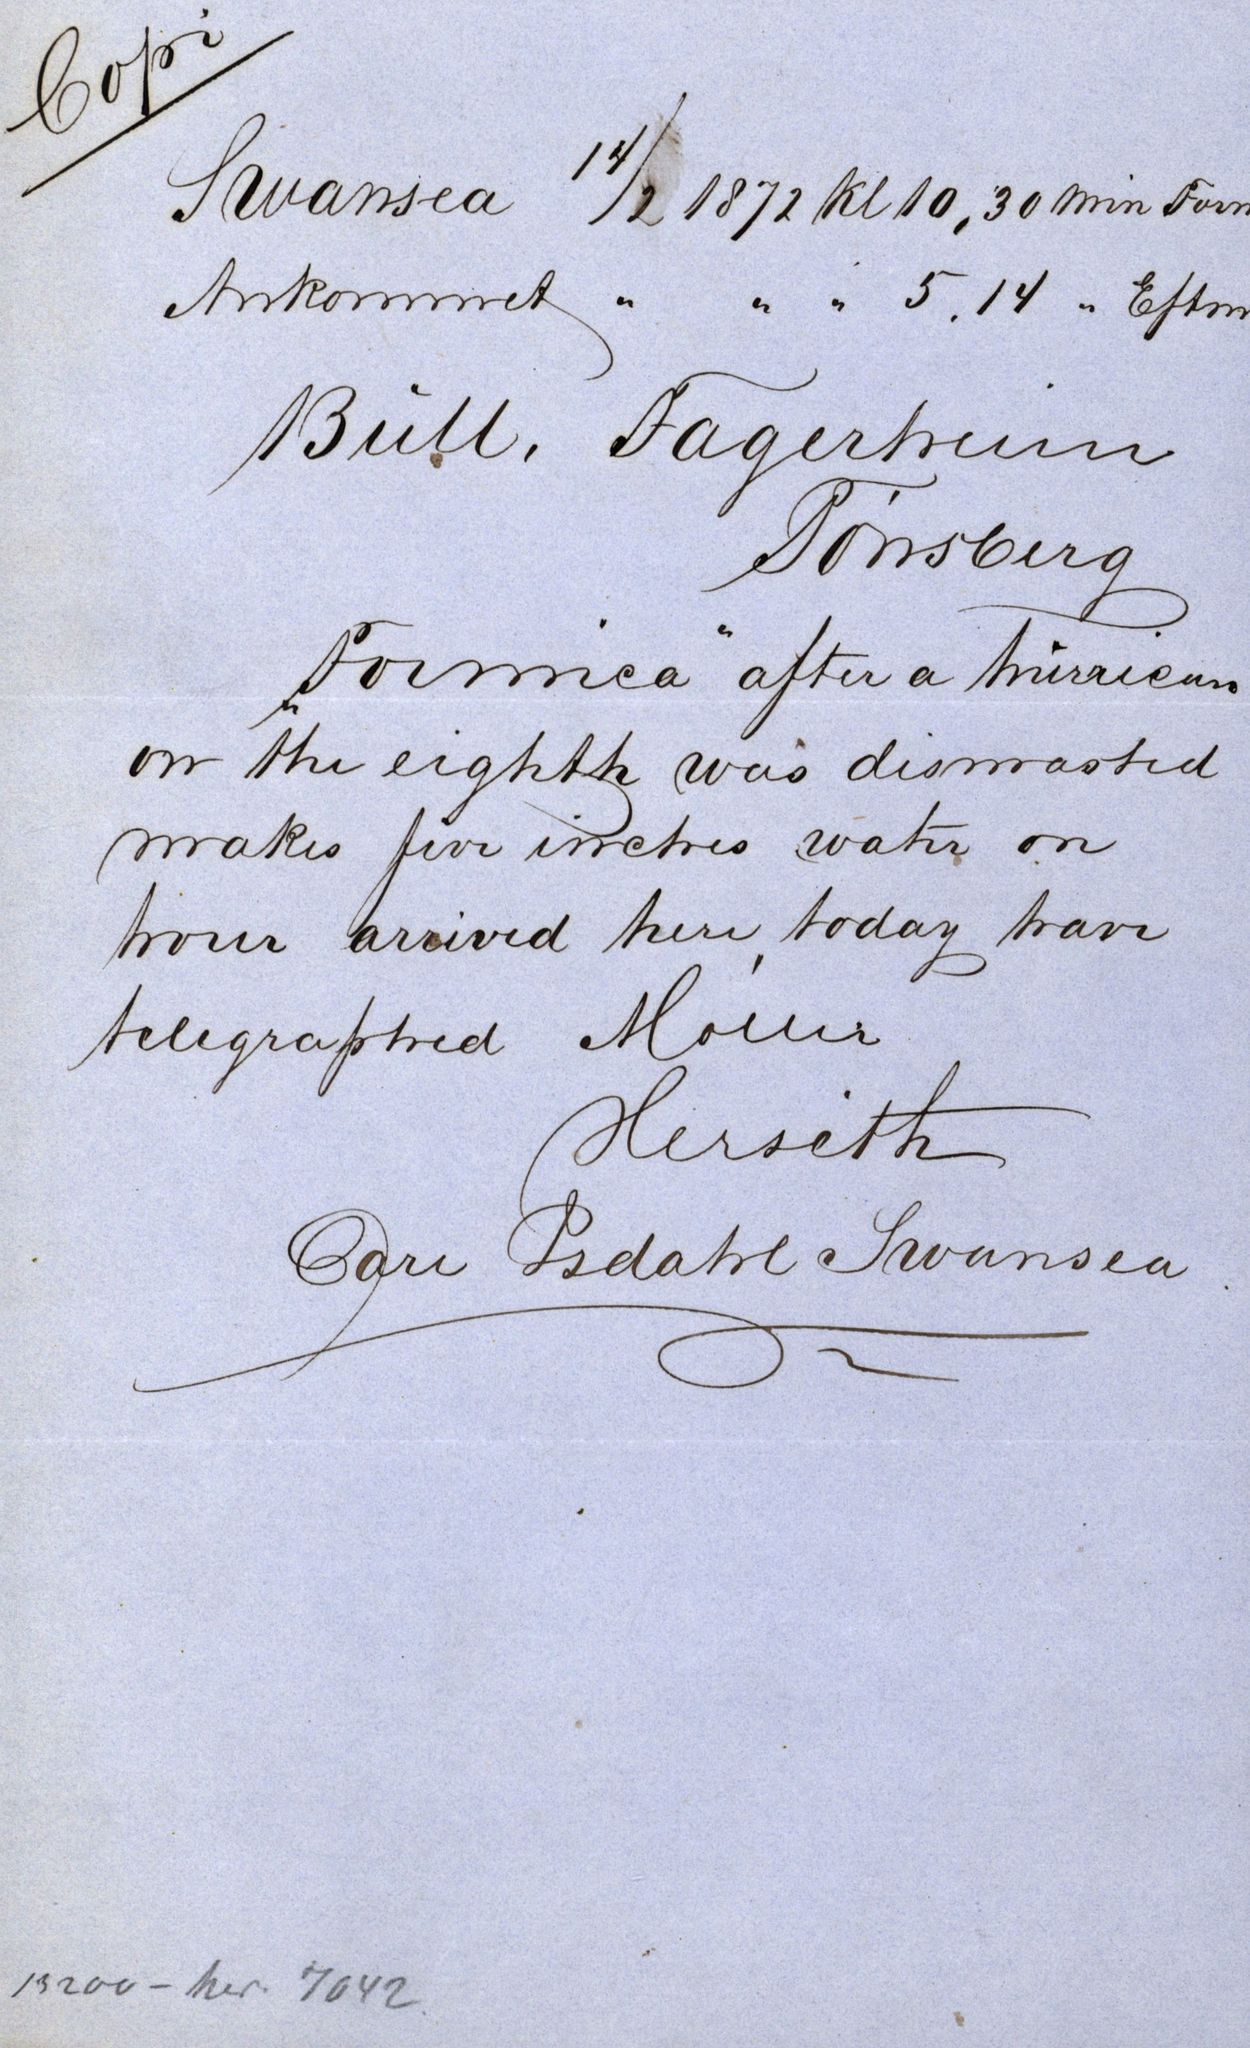 Copi
Swansea 14/2 1872 Kl 10,30 Min Form
Ankommet " " " 5.14 " Eftm
Büll, Fagerheim
Tönsberg
„Formica" after a hürrican
on the eighth was dismasted
makes five inches water on
hour arrived here, today have
telegraphed Möller
Herseth
Care Isdahl Swansea
13200 - her. 7042